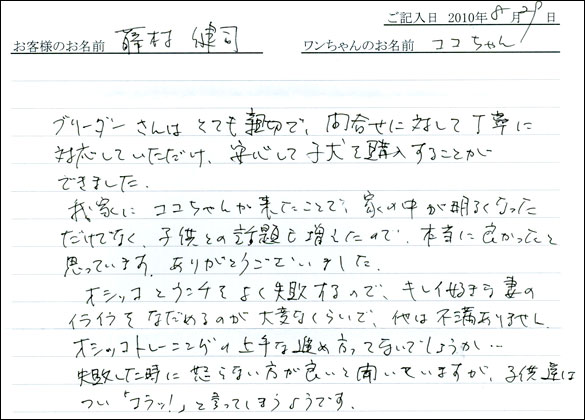 ご記入日 2010年8月29日
お客様のお名前 藤村 健司 ワンちゃんのお名前 ココちゃん
ブリーダーさんはとても親切で、問合せに対して丁寧に
対応していただけ、安心して子犬を購入することが
できました。
我家にココちゃんが来たことで、家の中が明るくなった
だけでなく、子供との話題も増えたので、本当に良かったと
思っています。ありがとうございました。
オシッコとウンチをよく失敗するので、キレイ好きな妻の
イライラをなだめるのが大変なくらいで、他は不満ありません。
オシッコトレーニングの上手な進め方ってないでしょうか…
失敗した時に怒らない方が良いと聞いていますが、子供達は
つい「コラッ!」と言ってしまうようです。